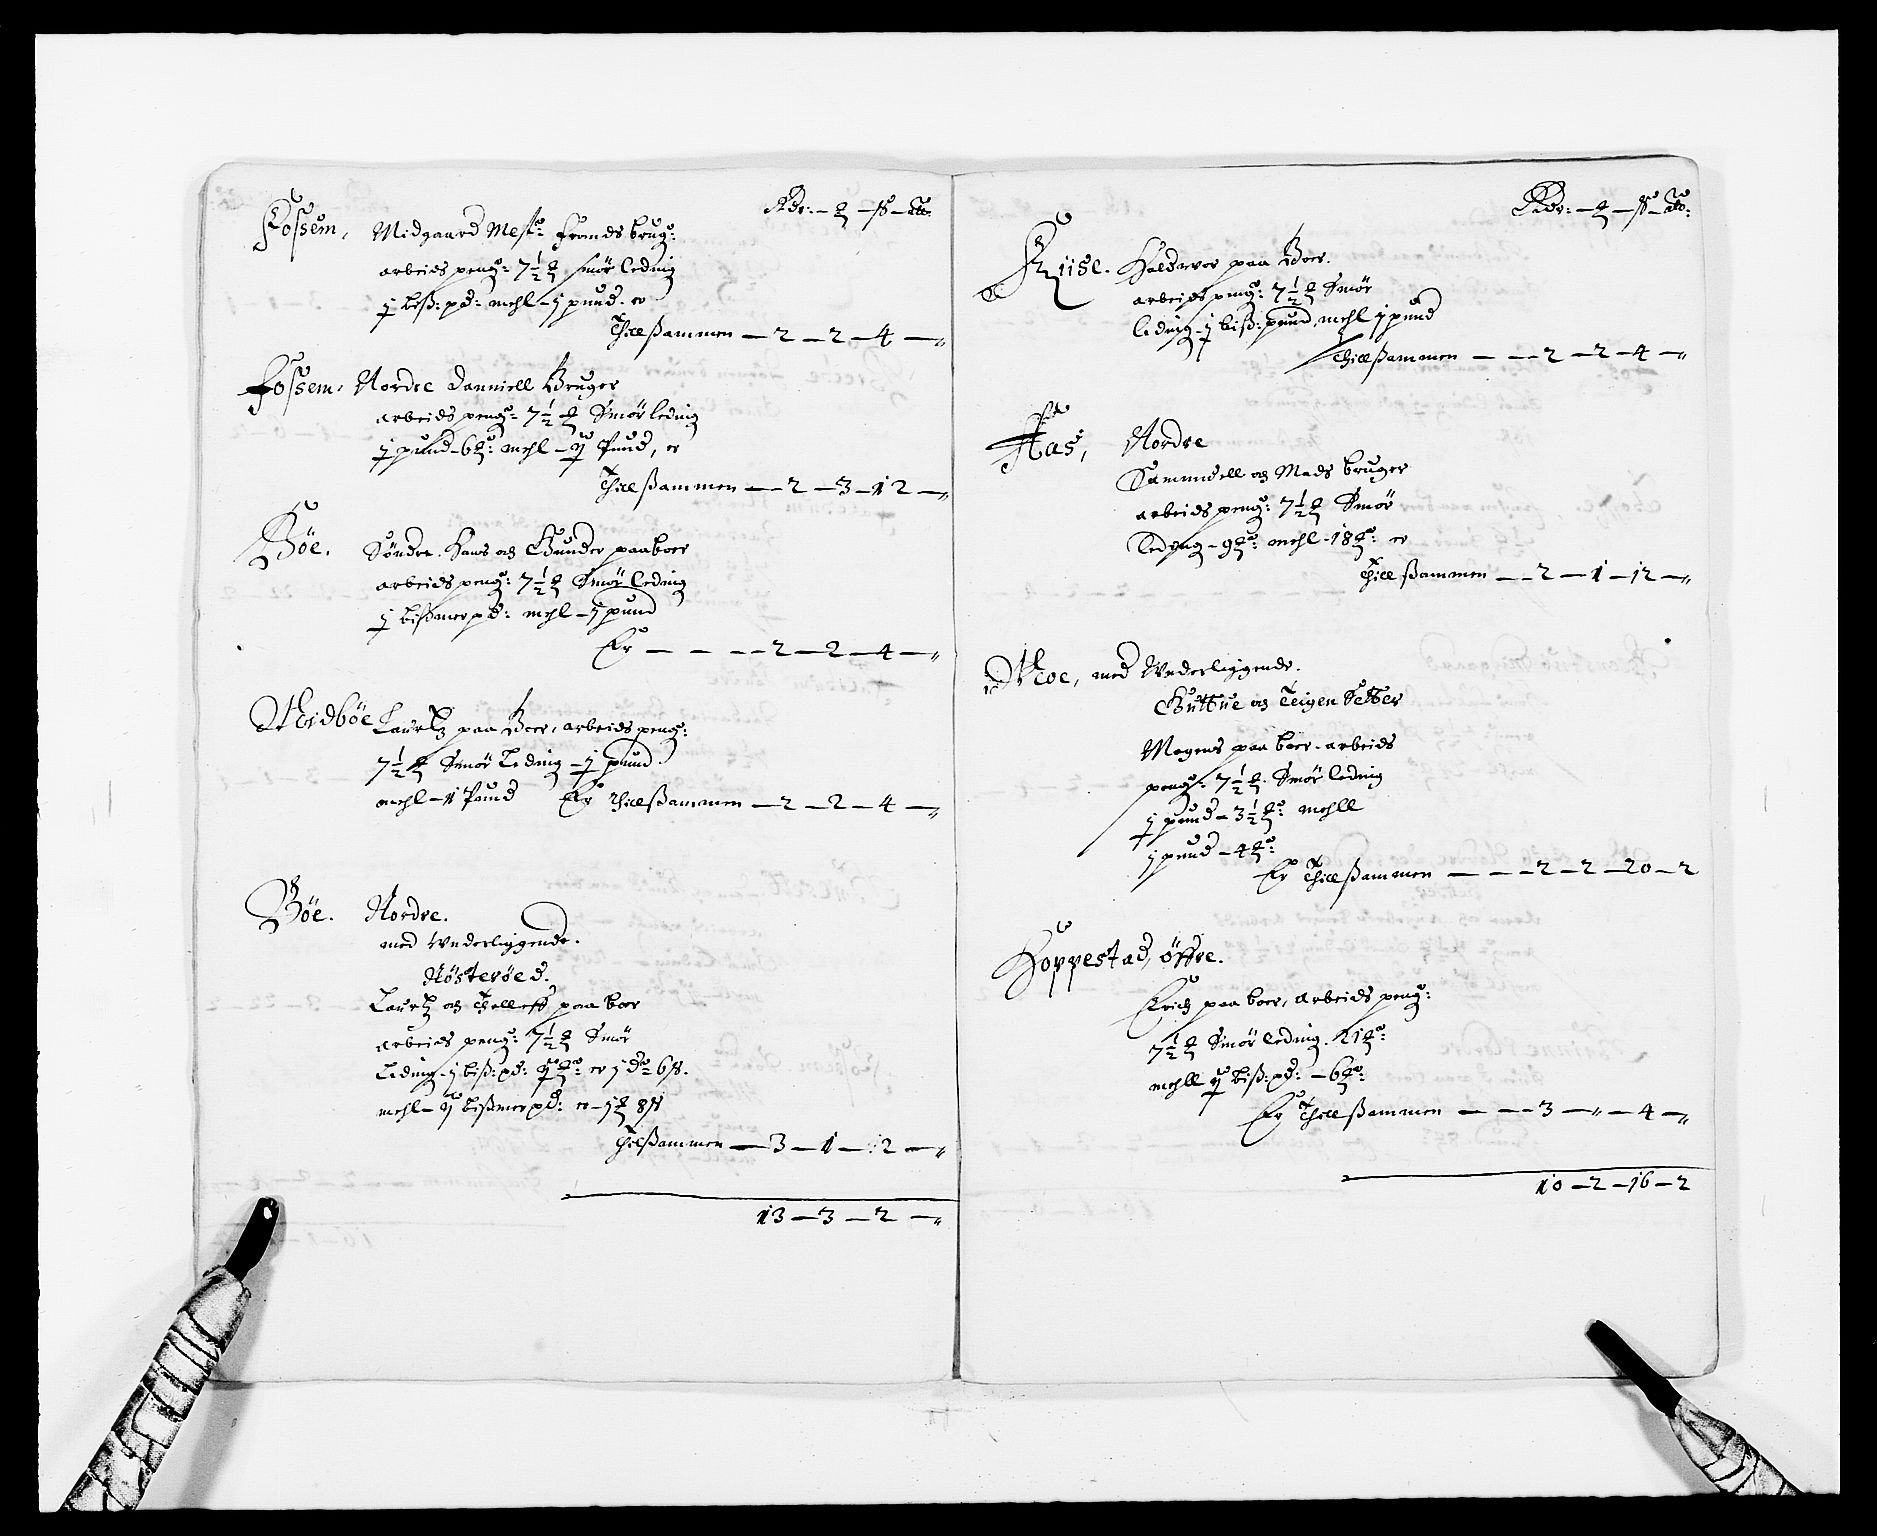 Rdr: — ₰ — ß — alb:
Fossem, Midgaard Mestr: Frands brug:
arbeids peng: 7½ ₰ Smör leding
j biß: pd: mehl – j pund. er
Thillßammen — 2 — 2 — 4 — "
Fossem, Nordre Danniell Bruger
arbeids peng: 7½ ₰ Smör leding
j pund – 6 ₰: mehl – ij Pund, er
Thillßammen — 2 — 3 — 12 — "
Böe. Söndre. Hans og Gunder paaboer
arbeids peng: 7½ ₰ Smör leding
j bißmer pd: mehl – j pund
Er — — — 2 — 2 — 4 — "
Meidböe Lauritz paa Boer, arbeids peng:
7½ ₰ Smör Leding – j pund
mehl – j Pund Er Thillßammen — 2 — 2 — 4 — "
Böe. Nordre.
med Underliggende.
Nösteröed.
Lauritz og Tolleff paa boer
arbeids peng: 7½ ₰ Smör
Leding – j biß: pd: er j dr 6 ß.
mehl – ij bißmer pd: er – j ₰ 8 ß
Thilßammen — 3 — 1 — 12 — "
13 — 3 — 2 — "
Rdr: — ₰ — ß — alb:
Riise. Haldwor paa Boer.
arbeids peng: 7½ ₰ Smör
leding – j biß: pund, mehl j pund
Thillßammen — — 2 — 2 — 4 — "
Aas, Nordre
Sammuell og Mads bruger
arbeids peng: 7½ ₰ Smör
Leding – 9 ₰: mehl – 18 ₰: er
Thill ßammen — — 2 — 1 — 12 — "
Moe, med Underliggende.
Guttue og Teigen Setter
Mogens paa boer. arbeids
peng: 7½ ₰. Smör leding
j pund – 3½ ₰: mehll
j pund – 4 ₰:
Er Thillßammen — — — 2 — 2 — 20 — 2
Hoppestad, öffre.
Erich paa boer, arbeids peng:
7½ ₰ Smör leding. 21 ₰:
mehll ij biß: pd: – 6 ₰:
Er Thillßammen — — — 3 — " — 4 — "
10 — 2 — 16 — 2